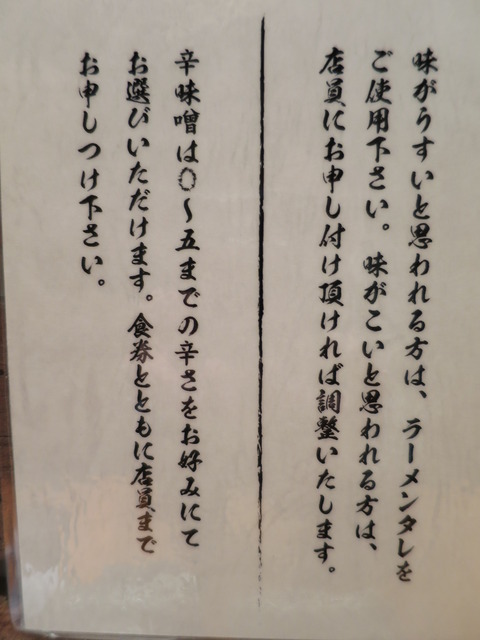 味がうすいと思われる方は、ラーメンタレを
ご使用下さい。味がこいと思われる方は、
店員にお申し付け頂ければ調整いたします。
辛味噌は〇～五までの辛さをお好みにて
お選びいただけます。食券とともに店員まで
お申しつけ下さい。